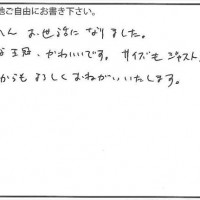 他ご自由にお書き下さい。
へん お世話になりました。
王冠、かわいいです。サイズも ジャスト
からも よろしく おねがいいたします。